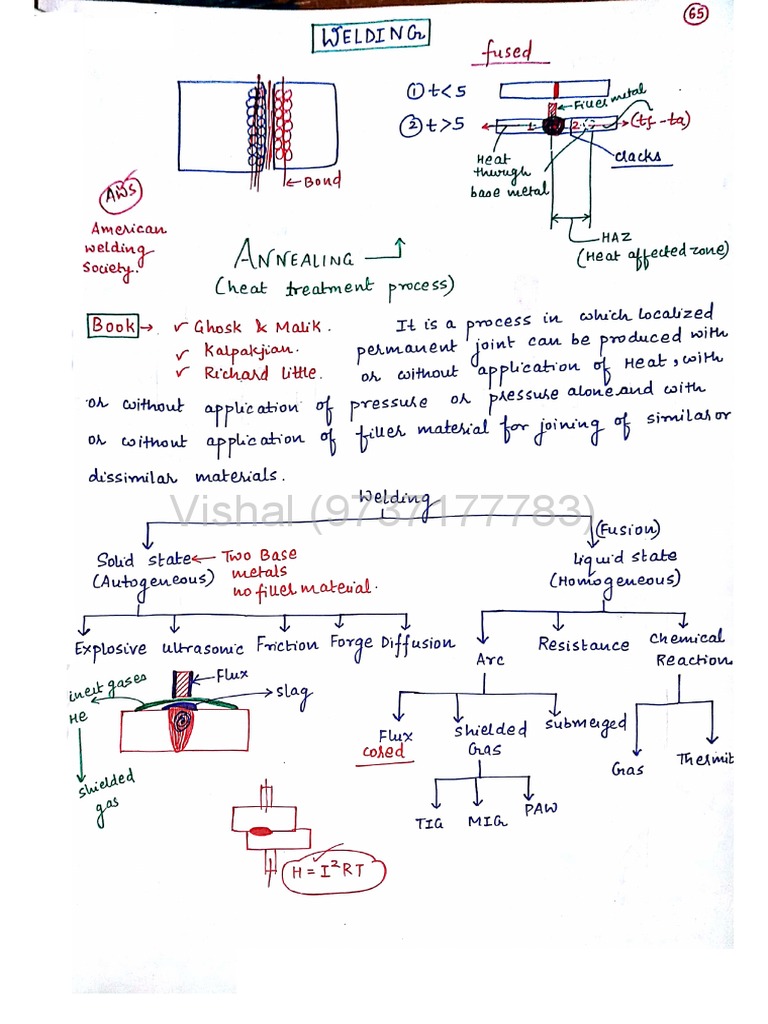 65
WELDING
fused
① t<5
Filler metal
② t>5
1
2
(tf-ta)
cracks
Heat
through
base metal
Bond
AWS
American
welding
Society.
HAZ
(Heat affected zone)
ANNEALING
(heat treatment process)
Book → ✓ Ghosk & Malik.
✓ Kalpakjian.
✓ Richard little.
It is a process in which localized
permanent joint can be produced with
or without application of Heat, with
or without application of pressure or pressure alone and with
or without application of filler material for joining of similar or
dissimilar materials.
Welding
Vishal (9737177783)
Solid state ← Two Base
(Autogeneous) metals
no filler material.
(Fusion)
liquid state
(Homogeneous)
Explosive ultrasonic Friction Forge Diffusion
Arc Resistance Chemical
Reaction
inert gases
He
shielded
gas
Flux
slag
Flux
cored
Shielded
Gas
submerged
Gas Thermit
TIG MIG PAW
H = I²RT